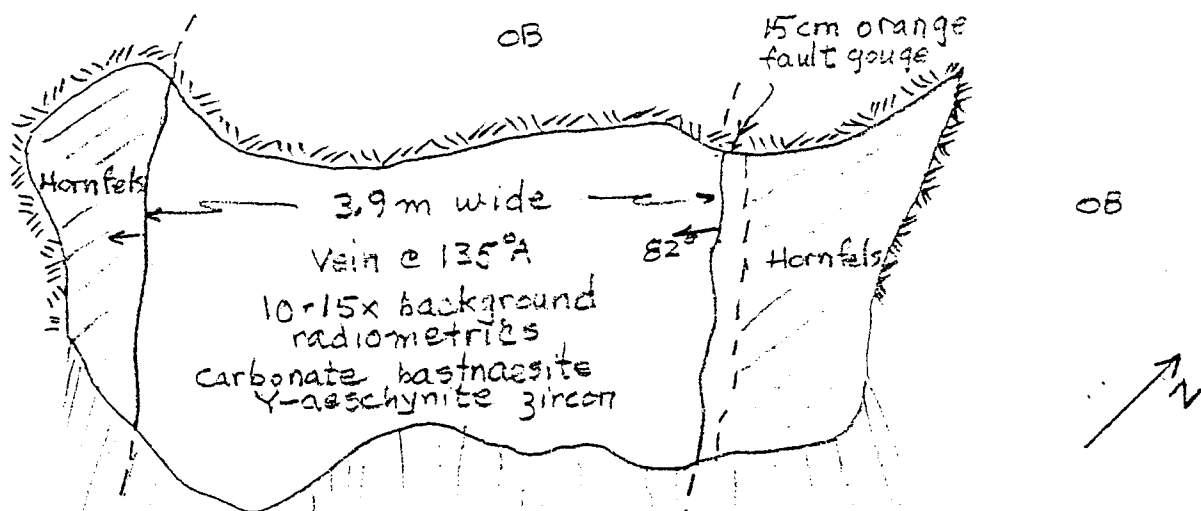 OB
15cm orange
fault gouge
Hornfels
3.9m wide
OB
82°
Vein @ 135°A
Hornfels
10-15x background
radiometrics
carbonate bastnaesite
Y-aeschynite zircon
N